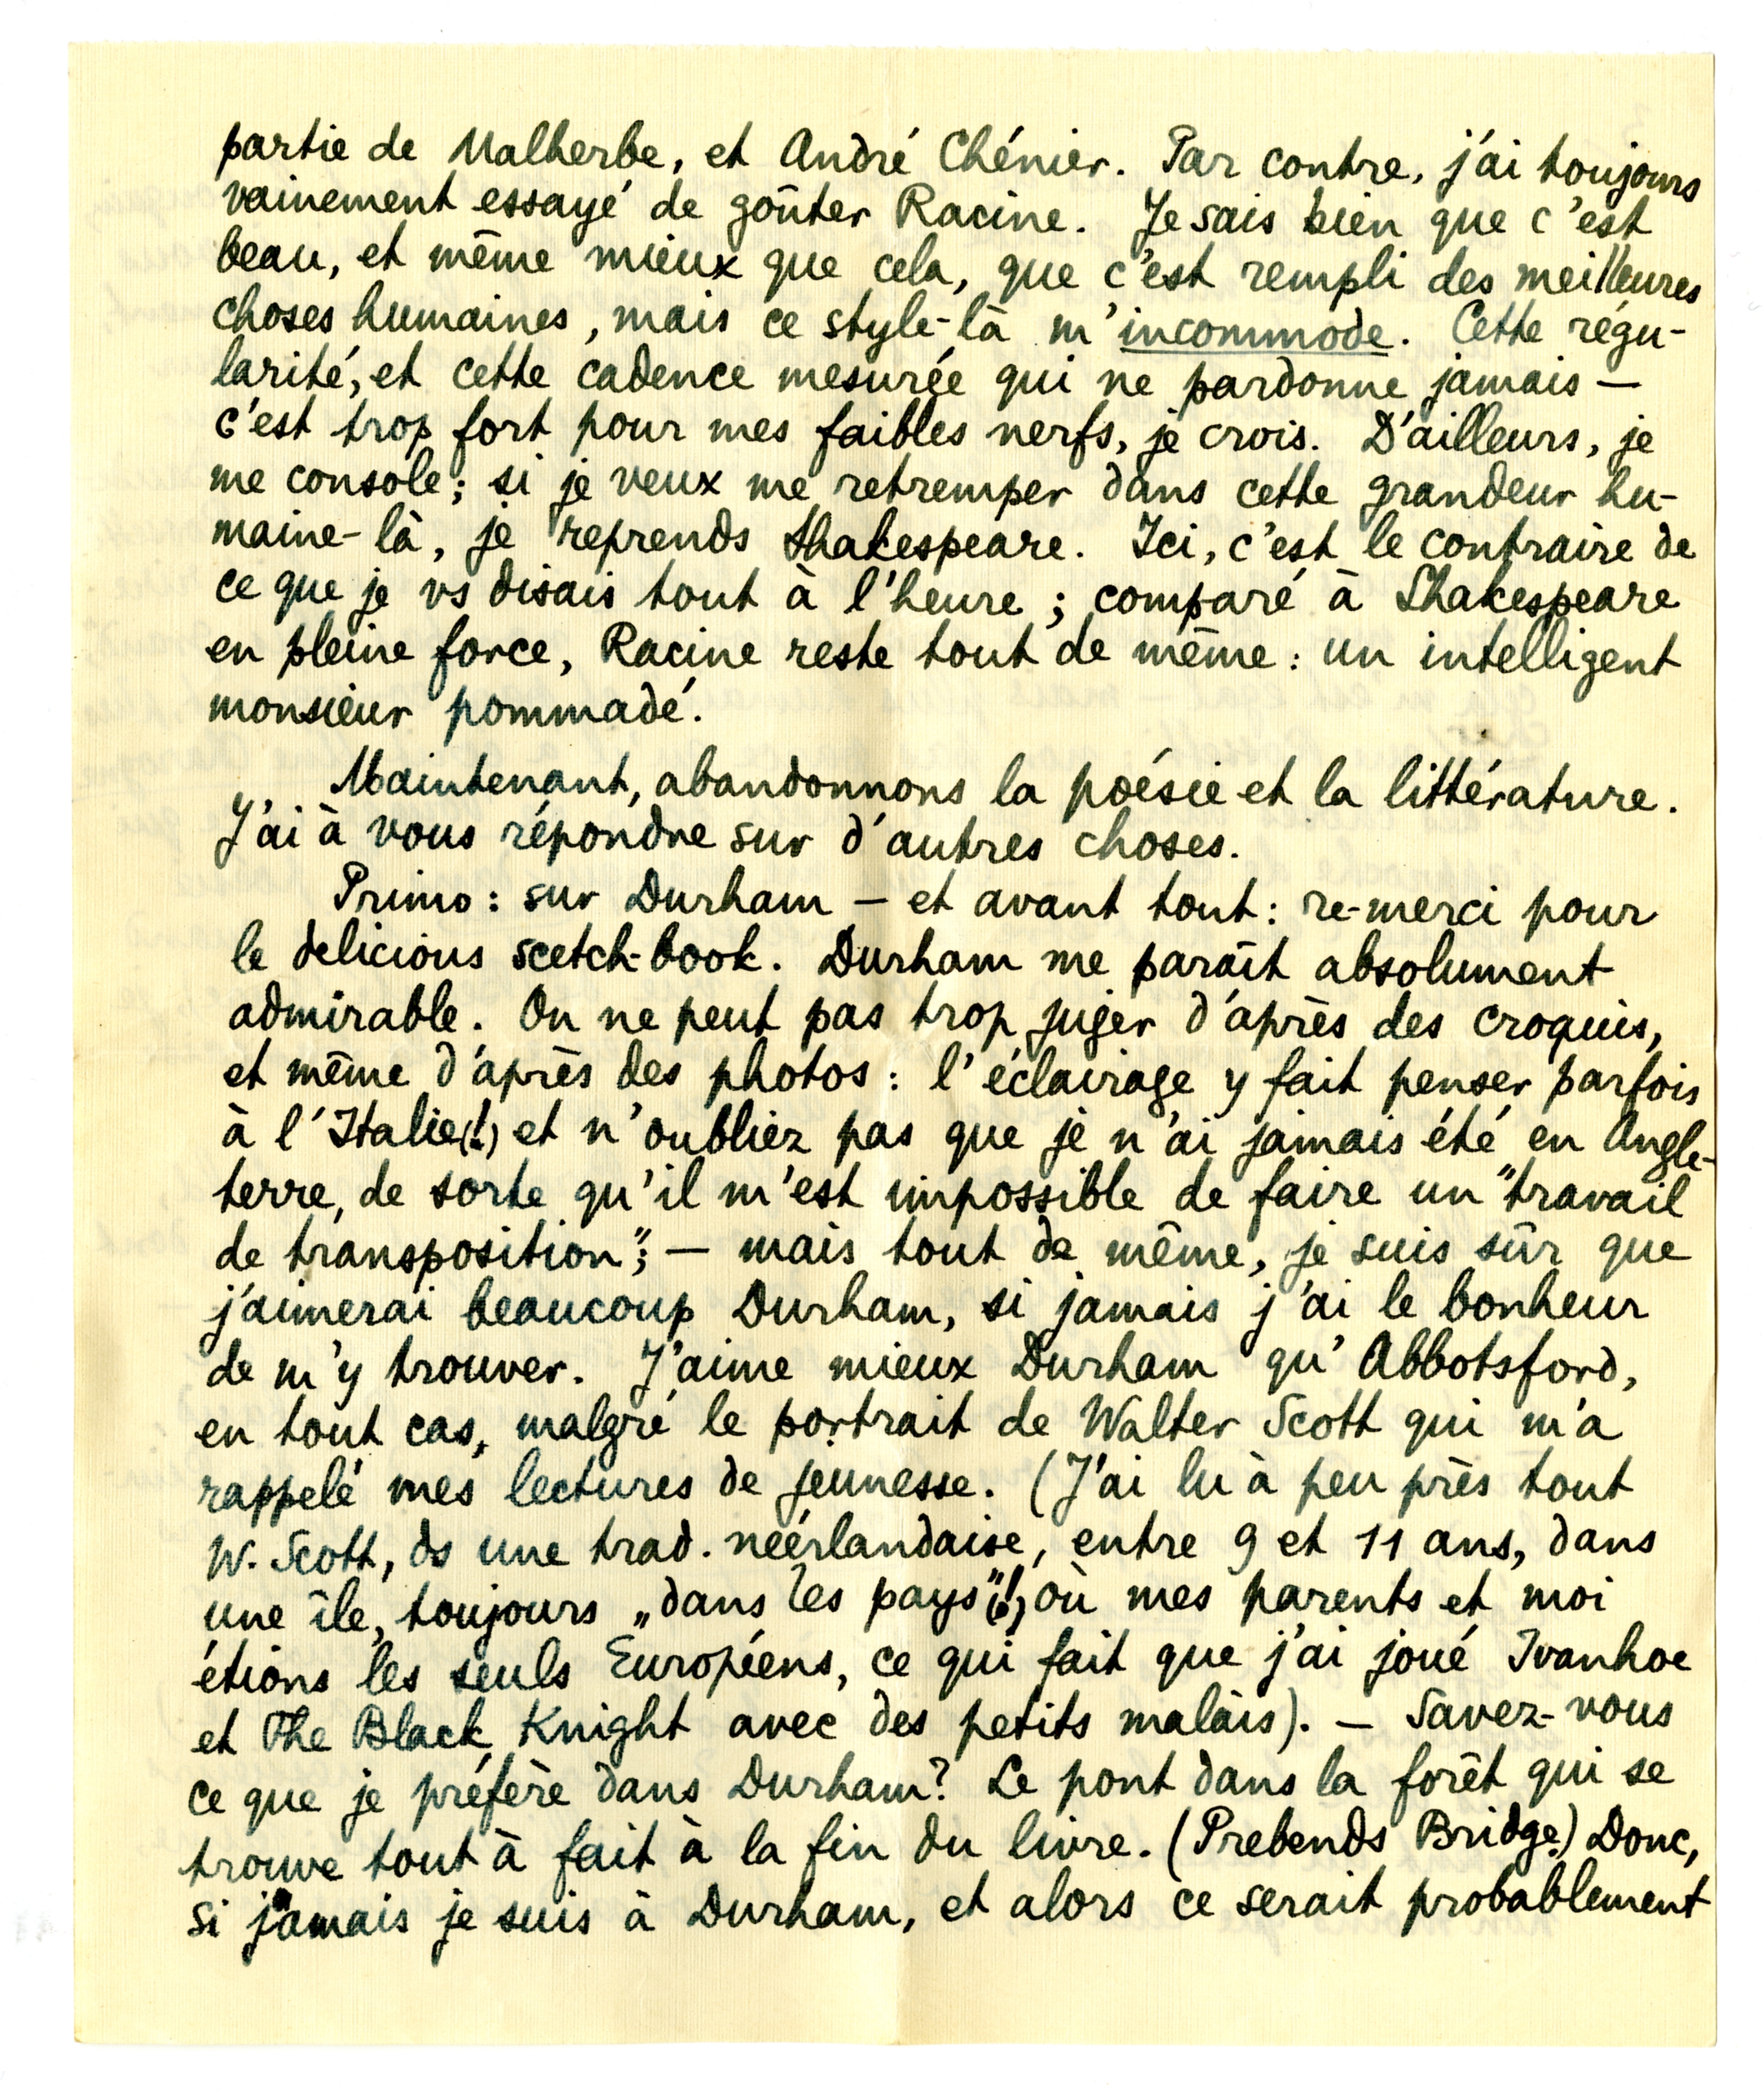 partie de Malherbe, et André Chénier. Par contre, j'ai toujours
vainement essayé de goûter Racine. Je sais bien que c'est
beau, et même mieux que cela, que c'est rempli des meilleures
choses humaines, mais ce style-là m'incommode. Cette régu-
larité, et cette cadence mesurée qui ne pardonne jamais —
c'est trop fort pour mes faibles nerfs, je crois. D'ailleurs, je
me console; si je veux me retremper dans cette grandeur hu-
maine-là, je reprends Shakespeare. Ici, c'est le contraire de
ce que je vs disais tout à l'heure; comparé à Shakespeare
en pleine force, Racine reste tout de même: un intelligent
monsieur pommadé.
Maintenant, abandonnons la poésie et la littérature.
J'ai à vous répondre sur d'autres choses.
Primo: sur Durham — et avant tout: re-merci pour
le delicious scetch-book. Durham me paraît absolument
admirable. On ne peut pas trop juger d'après des croquis,
et même d'après des photos: l'éclairage y fait penser parfois
à l'Italie(!) et n'oubliez pas que je n'ai jamais été en Angle-
terre, de sorte qu'il m'est impossible de faire un "travail
de transposition"; — mais tout de même, je suis sûr que
j'aimerai beaucoup Durham, si jamais j'ai le bonheur
de m'y trouver. J'aime mieux Durham qu'Abbotsford,
en tout cas, malgré le portrait de Walter Scott qui m'a
rappelé mes lectures de jeunesse. (J'ai lu à peu près tout
W. Scott, ds une trad. néérlandaise, entre 9 et 11 ans, dans
une île, toujours „dans les pays"(!) où mes parents et moi
étions les seuls Européens, ce qui fait que j'ai joué Ivanhoe
et The Black Knight avec des petits malais). — Savez-vous
ce que je préfère dans Durham? Le pont dans la forêt qui se
trouve tout à fait à la fin du livre. (Prebends Bridge.) Donc,
si jamais je suis à Durham, et alors ce serait probablement